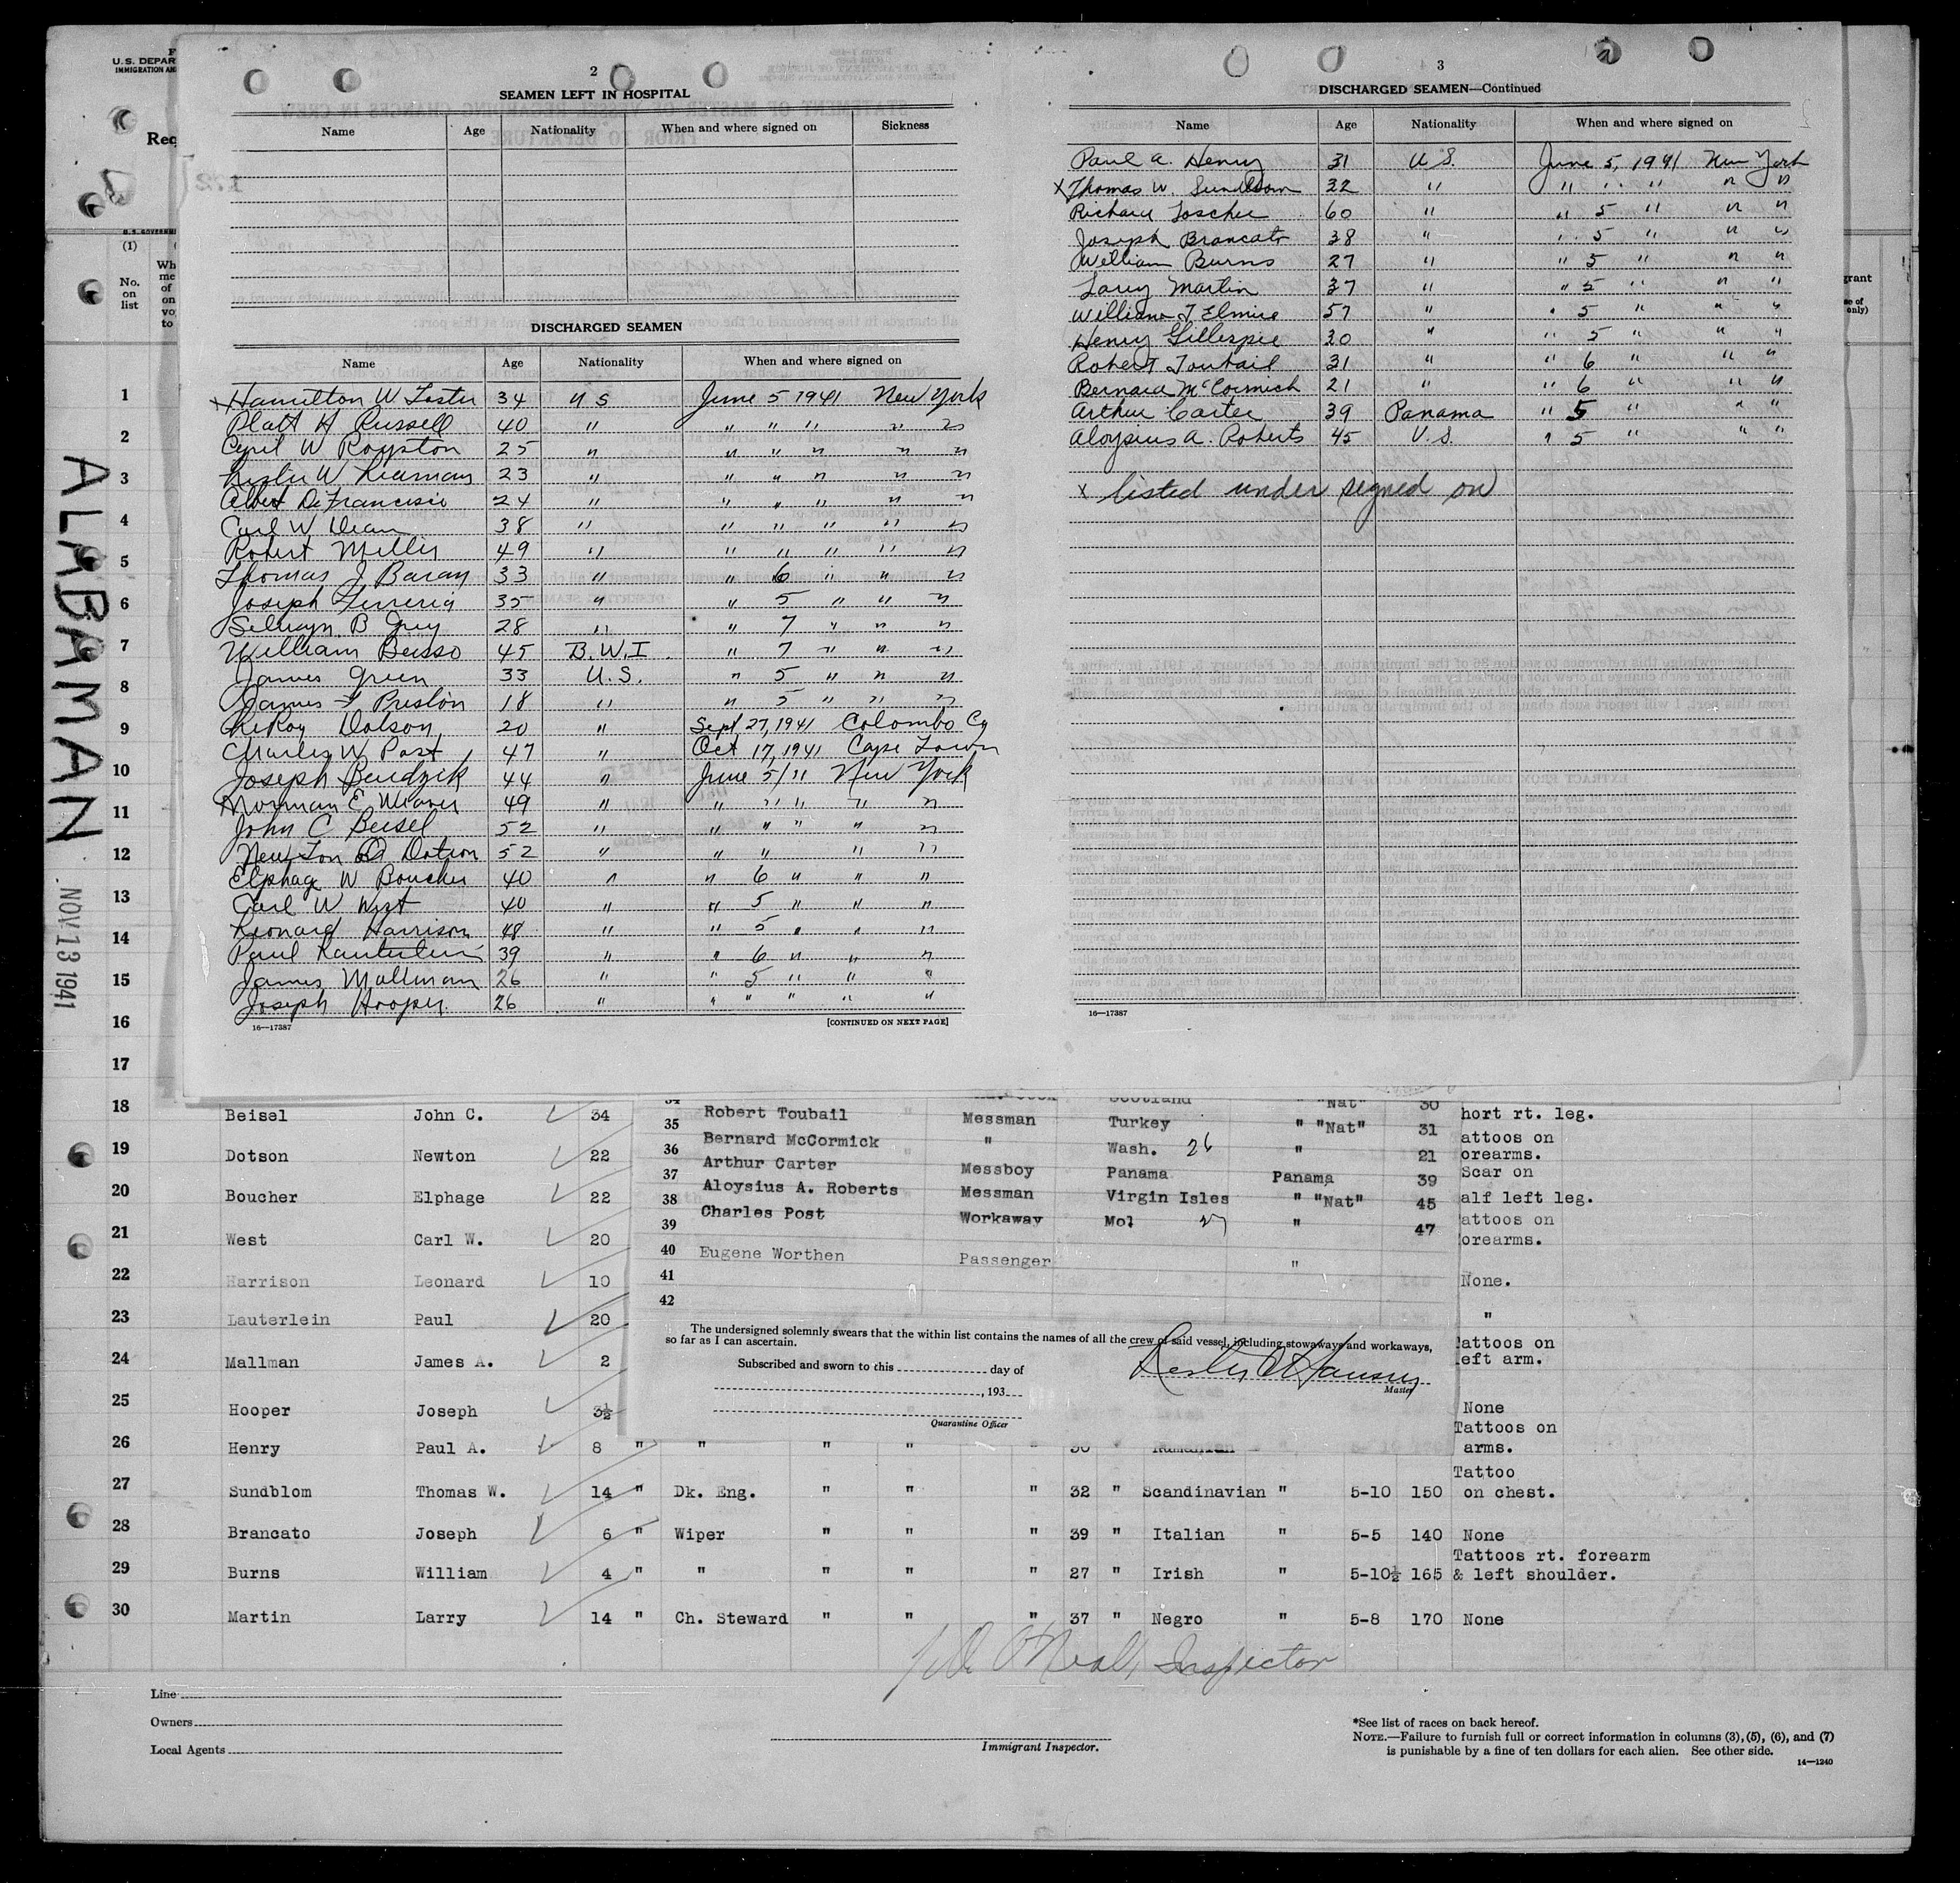 U.S. DEPAR
IMMIGRATION AN
Req
(1)
No.
on
list
ALABAMAN
NOV 13 1941
2
SEAMEN LEFT IN HOSPITAL
Name Age Nationality When and where signed on Sickness
DISCHARGED SEAMEN
Name Age Nationality When and where signed on
x Hamilton W Foster 34 U S June 5 1941 New York
Platt H Russell 40 " " " " " "
Cyril W Royston 25 " " " " " "
Leslie W Learman 23 " " " " " "
Albert DeFrancisio 24 " " " " " "
Carl W Dean 38 " " " " " "
Robert Millis 49 " " " " " "
Thomas J Baran 33 " " 6 " " "
Joseph Ferreria 35 " " 5 " " "
Selwyn B Grey 28 " " 7 " " "
William Busso 45 B.W.I " 7 " " "
James Green 33 U.S. " 5 " " "
James F Preston 18 " " 5 " " "
LeRoy Dotson 20 " Sept 27, 1941 Colombo Cy
Charles W Post 47 " Oct 17, 1941 Cape Town
Joseph Bendzik 44 " June 5/11 New York
Norman E Weaver 49 " " " " " "
John C Beisel 52 " " " " " "
Newton Dotson 52 " " " " "
Elphage W Boucher 40 " " 6 " " "
Carl W West 40 " " 5 " " "
Leonard Harrison 48 " " 5 " " "
Paul Lauterlein 39 " " 6 " " "
James Mallman 26 " " 5 " " "
Joseph Hooper 26 " " " " " "
16—17387 [CONTINUED ON NEXT PAGE]
3
DISCHARGED SEAMEN—Continued
Name Age Nationality When and where signed on
Paul A. Henry 31 U S. June 5, 1941 New York
x Thomas W. Sundblom 32 " " " " " "
Richard Loscher 60 " " 5 " " "
Joseph Brancato 38 " " 5 " " "
William Burns 27 " " 5 " " "
Larry Martin 37 " " 5 " " "
William T Elmire 57 " " 5 " " "
Henry Gillespie 30 " " 5 " " "
Robert Toubail 31 " " 6 " " "
Bernard McCormick 21 " " 6 " " "
Arthur Carter 39 Panama " 5 " " "
Aloysius A. Roberts 45 U.S. " 5 " " "
x listed under signed on
16—17387
1
2
3
4
5
6
7
8
9
10
11
12
13
14
15
16
17
18 Beisel John C. 34
19 Dotson Newton 22
20 Boucher Elphage 22
21 West Carl W. 20
22 Harrison Leonard 10
23 Lauterlein Paul 20
24 Mallman James A. 2
25 Hooper Joseph 3½
26 Henry Paul A. 8 " " " " "
27 Sundblom Thomas W. 14 " Dk. Eng. " " " 32 " Scandinavian " 5-10 150 Tattoo on chest.
28 Brancato Joseph 6 " Wiper " " " 39 " Italian " 5-5 140 None
29 Burns William 4 " " " " " 27 " Irish " 5-10½ 165 Tattoos rt. forearm & left shoulder.
30 Martin Larry 14 " Ch. Steward " " " 37 " Negro " 5-8 170 None
34 Scotland " "Nat" 30
35 Robert Toubail Messman Turkey " "Nat" 31
36 Bernard McCormick " Wash. 26 " 21
37 Arthur Carter Messboy Panama Panama 39
38 Aloysius A. Roberts Messman Virgin Isles " "Nat" 45
39 Charles Post Workaway Mo1 27 " 47
40 Eugene Worthen Passenger "
41
42
The undersigned solemnly swears that the within list contains the names of all the crew of said vessel, including stowaways and workaways,
so far as I can ascertain.
Subscribed and sworn to this day of
, 193
Master
Quarantine Officer
hort rt. leg.
attoos on
orearms.
Scar on
alf left leg.
attoos on
orearms.
None.
"
attoos on
eft arm.
None
Tattoos on
arms.
O'Neal, Inspector
Line
Owners
Local Agents
Immigrant Inspector.
*See list of races on back hereof.
NOTE.—Failure to furnish full or correct information in columns (3), (5), (6), and (7)
is punishable by a fine of ten dollars for each alien. See other side.
14—1240